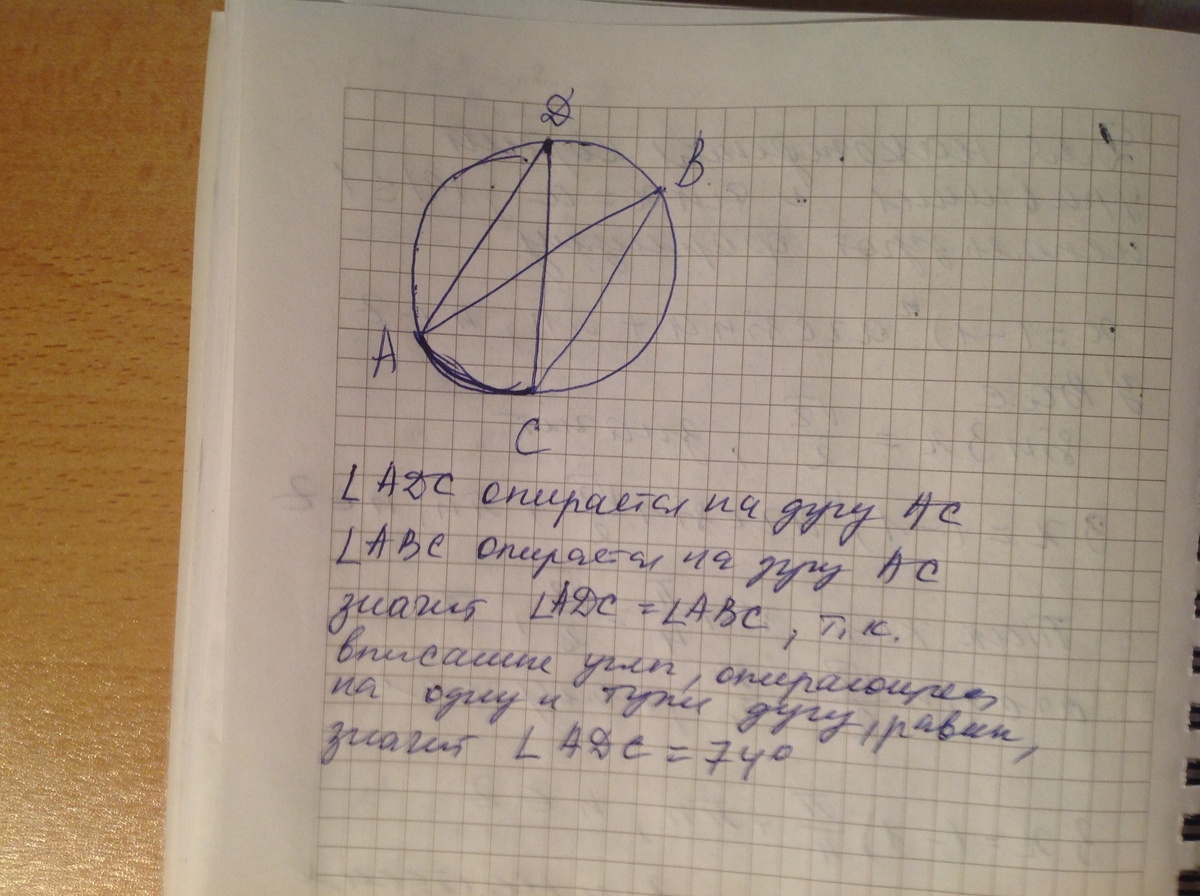 D
B
A
C
∠ADC опирается на дугу AC
∠ABC опирается на дугу AC
значит ∠ADC = ∠ABC, т.к.
вписаные углы, опирающиеся
на одну и туже дугу, равны,
значит ∠ADC = 74°